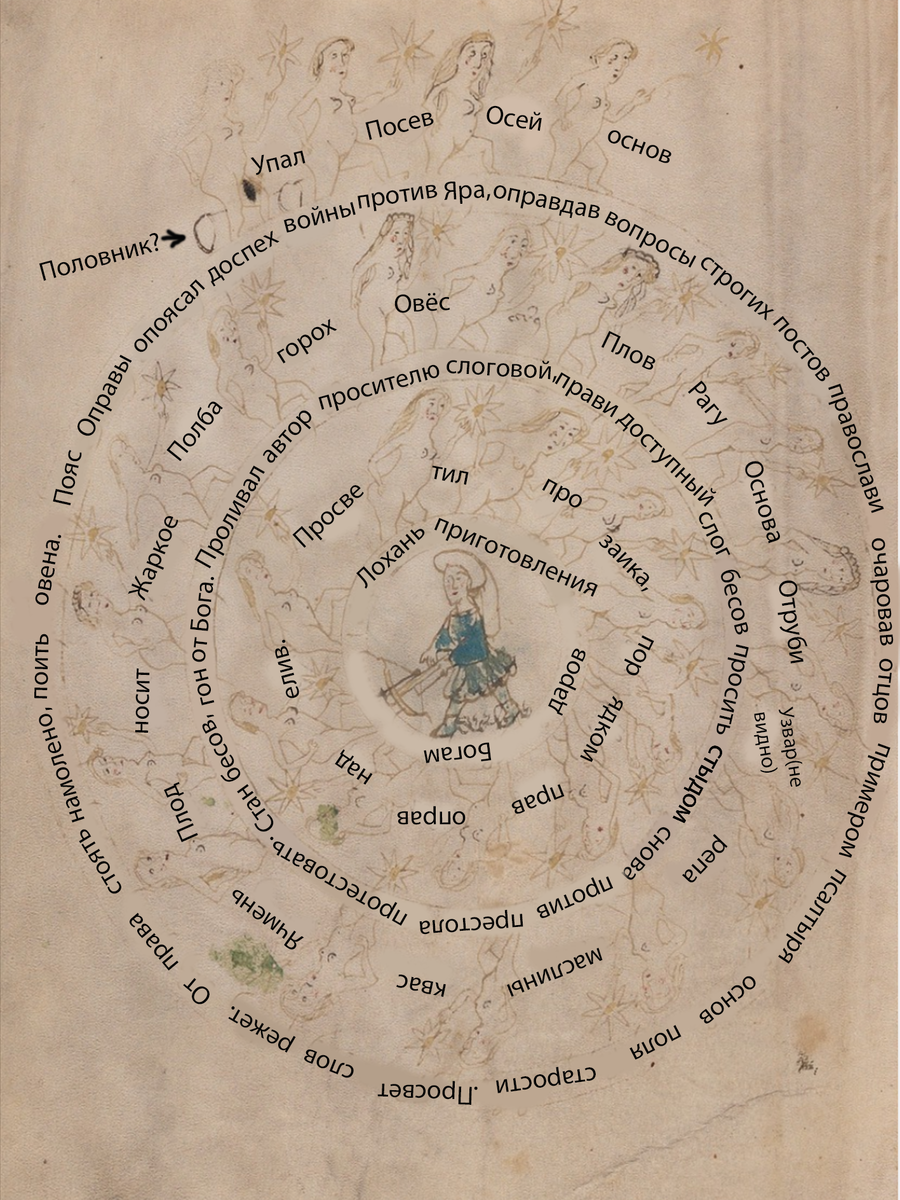 Упал Посев Осей основ
Половник?
Пояс Оправы опоясал доспех войны против Яра, оправдав вопросы строгих постов православи очаровав отцов примером псалтыря основ поля старости .Просвет слов режет. От права стоять намолено, поить овена.
горох Овёс Плов Рагу Основа Отруби узвар(не видно) репа маслины квас Ячмень Плод носит Жаркое Полба
Проливал автор просителю слоговой, прави доступный слог бесов просить стыдом снова против престола протестовать. Стан бесов, гон от Бога.
Просве тил про заика, пор ядком прав оправ над елив.
Лохань приготовления даров Богам